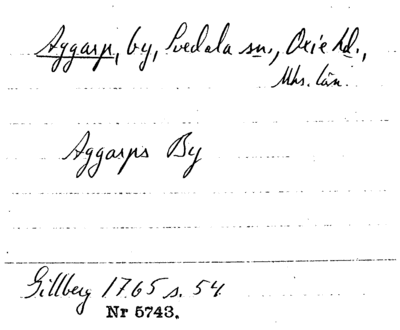 Aggarp, by, Svedala sn., Oxie hd.,
Mhs. län.
Aggarps By
Gillberg 1765 s. 54.
Nr 5743.